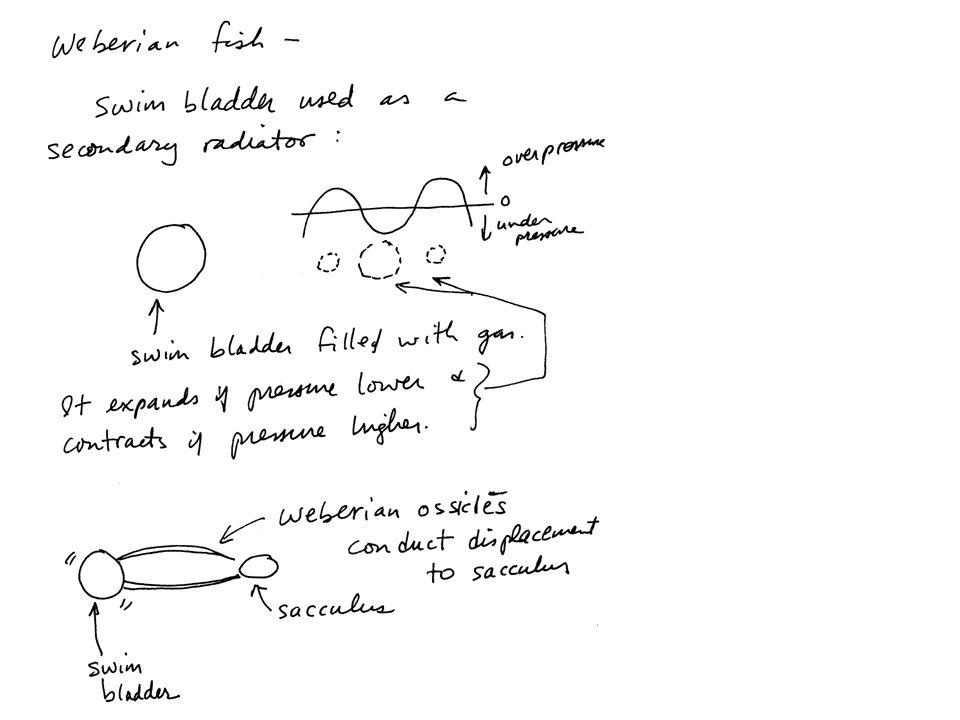 Weberian fish -
Swim bladder used as a
secondary radiator :
overpressure
0
under
pressure
swim bladder filled with gas.
It expands if pressure lower &
contracts if pressure higher.
Weberian ossicles
conduct displacement
to sacculus
sacculus
swim
bladder